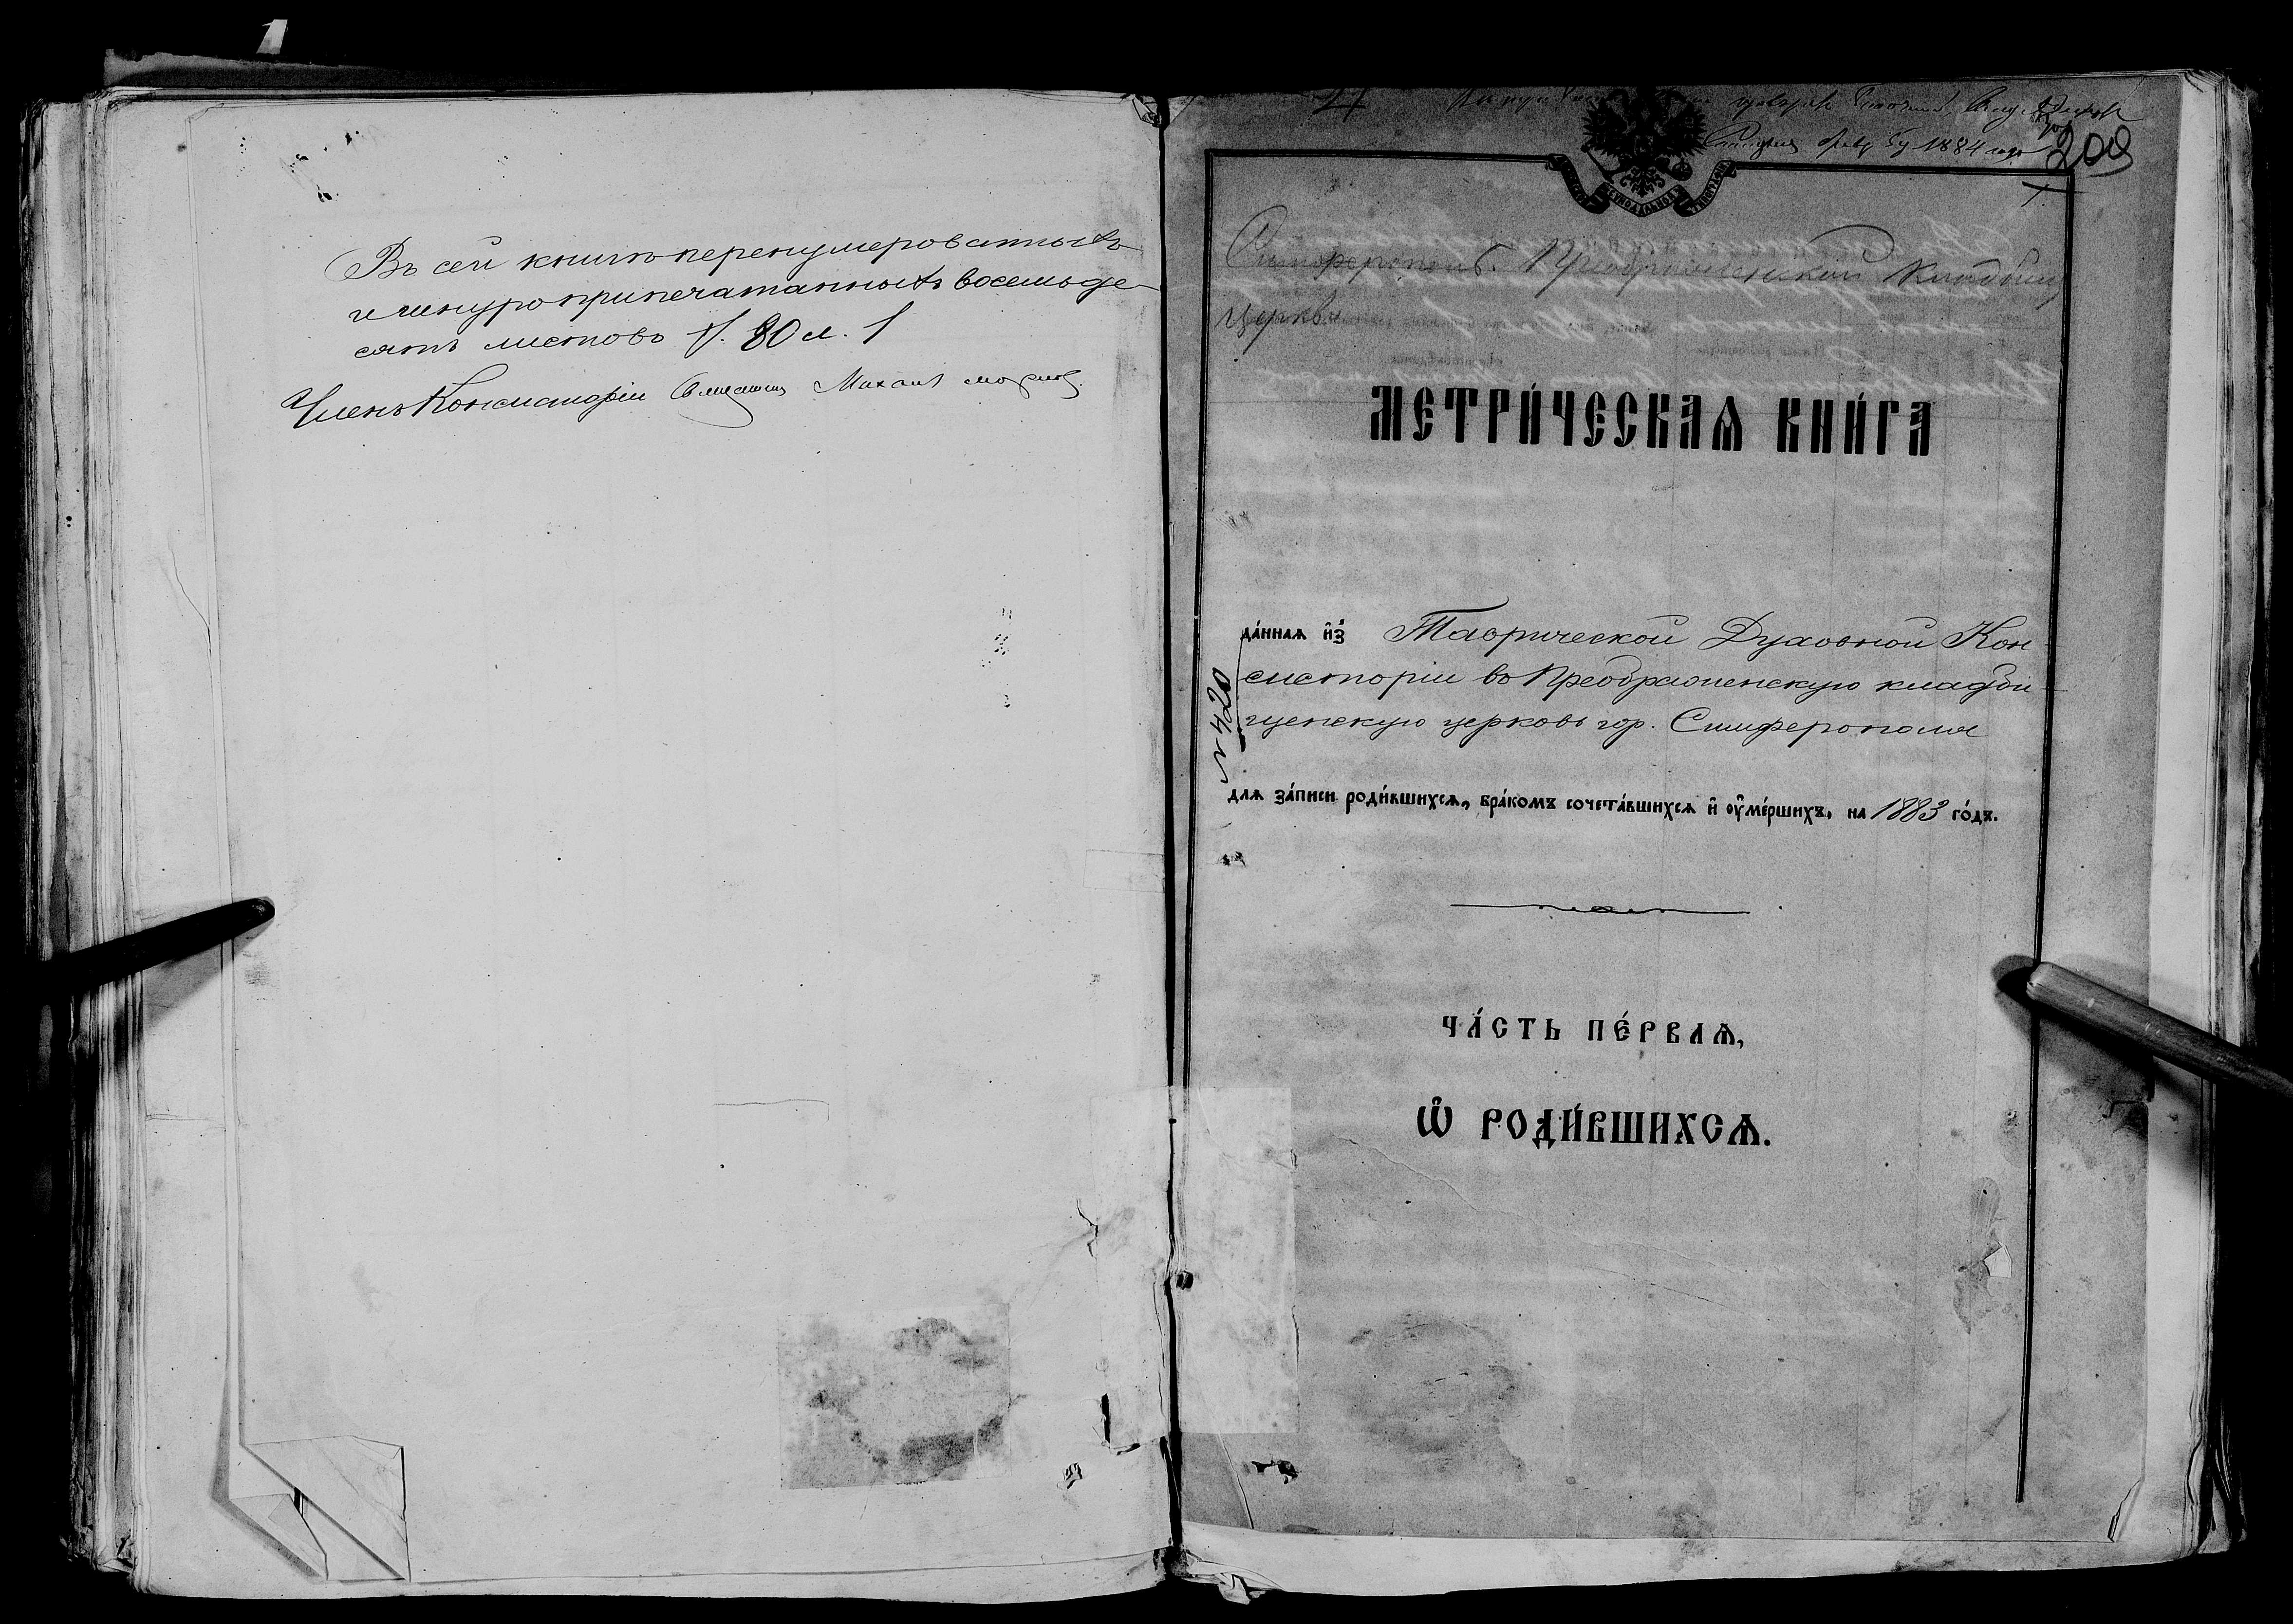 1
Въ сей книгѣ перенумерованныхъ
и шнуроприпечатанныхъ восемьде-
сятъ листовъ /. 80 л. /
Членъ Консисторіи Священникъ Михаилъ
1884 года
209
СѴНОДАЛЬНОЙ
Симферополь. Преображенской Кладбищ
Церкви
МЕТРИ́ЧЕСКАѦ КНИ́ГА
да́ннаѧ и҆з̾ Таврической Духовной Кон-
систоріи въ Преображенскую кладби-
щенскую церковь гор. Симферополя
длѧ за́писи роди́вшихсѧ, бра́комъ сочета́вшихсѧ и҆ ᲂу҆ме́ршихъ, на 1883 го́дъ.
ЧА́СТЬ ПЕ́РВАѦ,
Ѽ РОДИ́ВШИХСѦ.